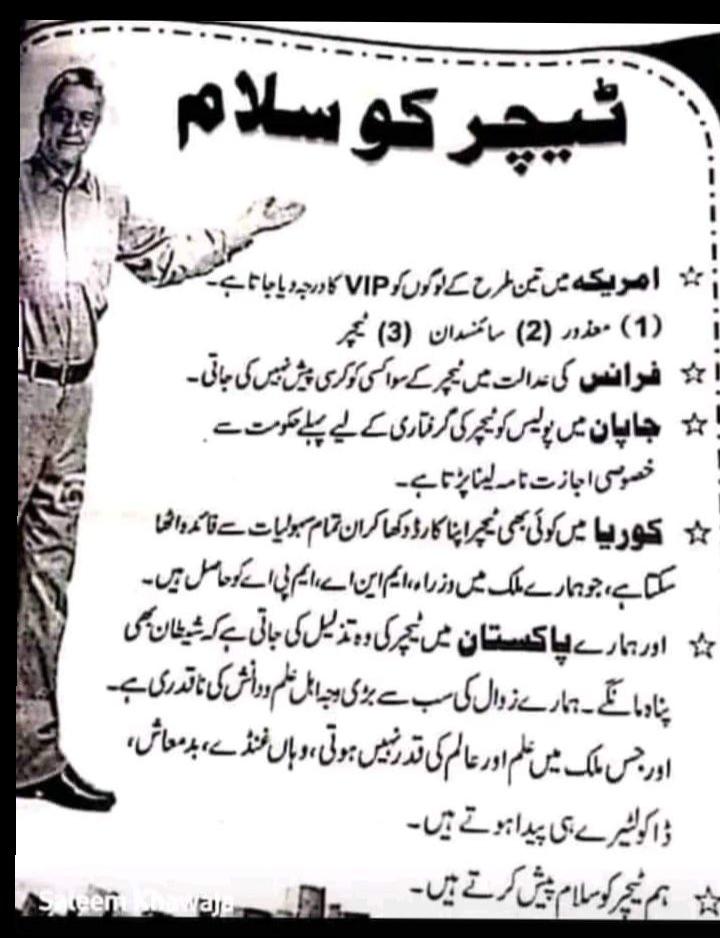 ٹیچر کو سلام
☆ امریکہ میں تین طرح کے لوگوں کو VIP کا درجہ دیا جاتا ہے۔
(1) معذور (2) سائنسدان (3) ٹیچر
☆ فرانس کی عدالت میں ٹیچر کے سوا کسی کو کرسی پیش نہیں کی جاتی۔
☆ جاپان میں پولیس کو ٹیچر کی گرفتاری کے لیے پہلے حکومت سے
خصوصی اجازت نامہ لینا پڑتا ہے۔
☆ کوریا میں کوئی بھی ٹیچر اپنا کارڈ دکھا کر ان تمام سہولیات سے فائدہ اٹھا
سکتا ہے، جو ہمارے ملک میں وزراء، ایم این اے، ایم پی اے کو حاصل ہیں۔
☆ اور ہمارے پاکستان میں ٹیچر کی وہ تذلیل کی جاتی ہے کہ شیطان بھی
پناہ مانگے۔ ہمارے زوال کی سب سے بڑی وجہ اہل علم و دانش کی ناقدری ہے۔
اور جس ملک میں علم اور عالم کی قدر نہیں ہوتی، وہاں غنڈے، بدمعاش،
ڈاکو لٹیرے ہی پیدا ہوتے ہیں۔
☆ ہم ٹیچر کو سلام پیش کرتے ہیں۔
Saleem Khawaja